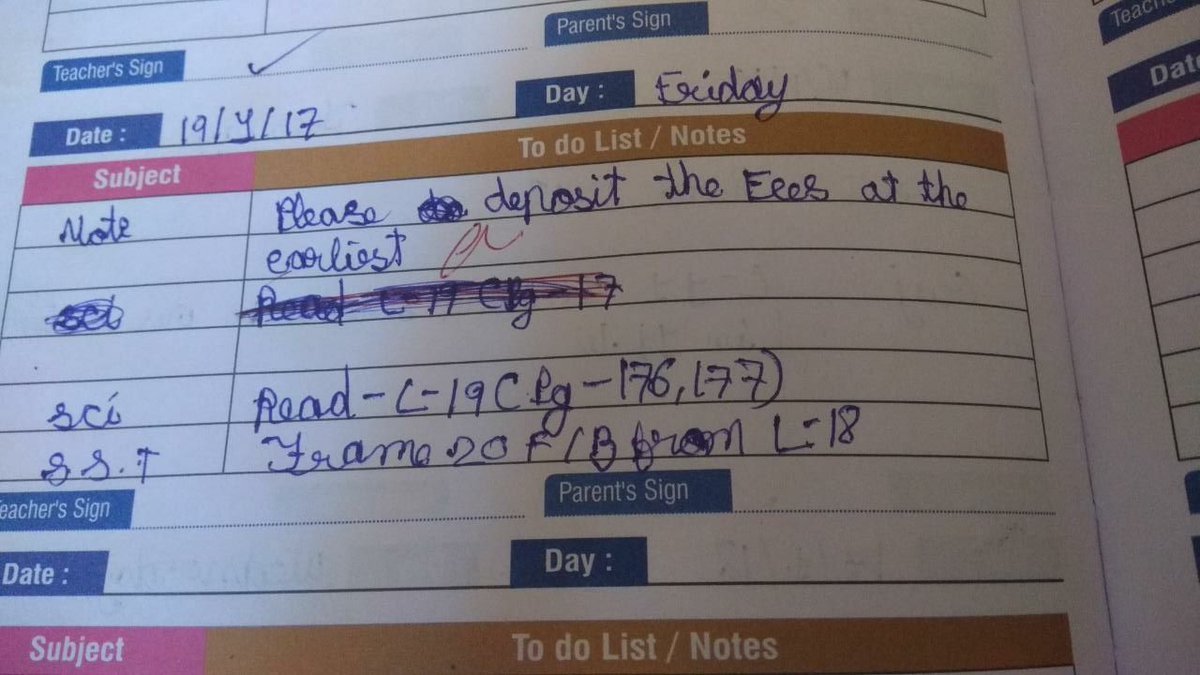 Parent's Sign
Teacher's Sign
Date : 19/ /17 Day : Friday
Subject To do List / Notes
Note Please deposit the Fees at the
earliest
Read L-17 CPg-17
sci Read-L-19 ( Pg-176,177)
S.S.T Frame 20 F/B from L-18
Teacher's Sign Parent's Sign
Date : Day :
Subject To do List / Notes
Date